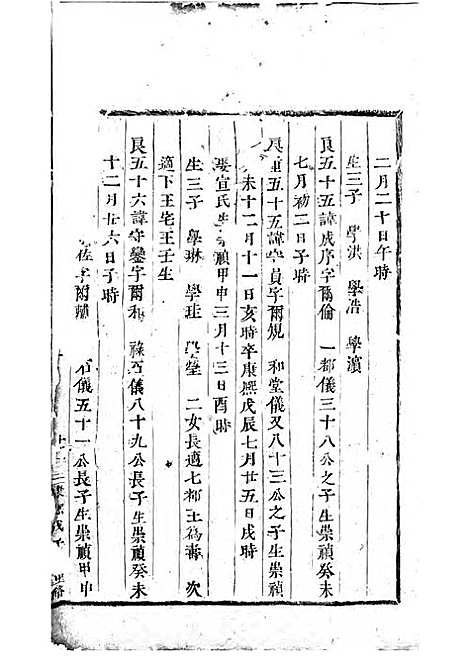 二月二十日午時
生三子　學洪　學浩　學濱
良五十五諱成序字爾倫　一都儀三十八公之子生崇禎癸未
七月初二日子時
良重五十五諱守貞字爾規　和堂儀又八十三公之子生崇禎癸
未十二月十一日亥時卒康熙戊辰七月廿五日戌時
娶宣氏生崇禎甲申三月十三日酉時
生三子　學琳　學珪　學瑩　二女長適七都王爲壽　次
適下王宅王壬生
良五十六諱守鑾字爾和　祿百儀八十九公長子生崇禎癸未
十二月廿六日子時
佐字爾輔　石儀五十一公長子生崇禎甲申